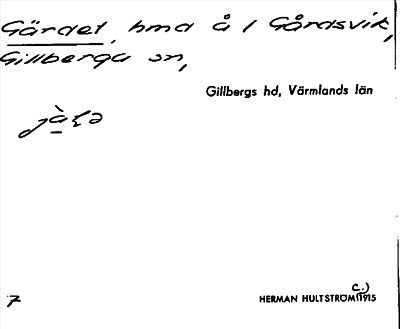 Gärdet, hmd å 1 Gårdsvik,
Gillberga sn,
Gillbergs hd, Värmlands län
7
HERMAN HULTSTRÖM (c.) 1915